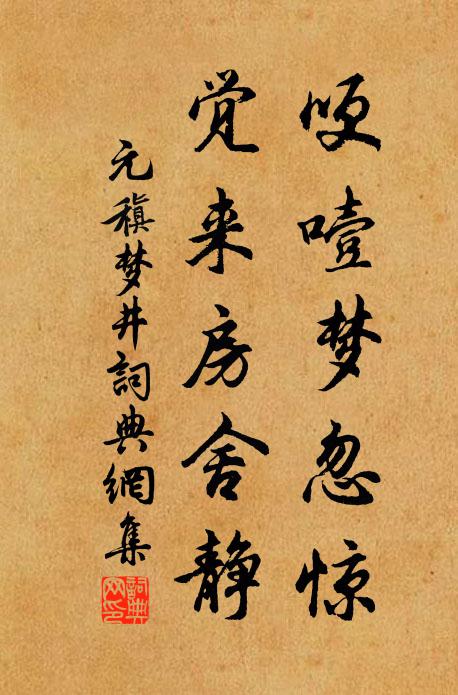 哽噎梦忽惊
觉来房舍静
元稹梦井詞典網集
詞典網印